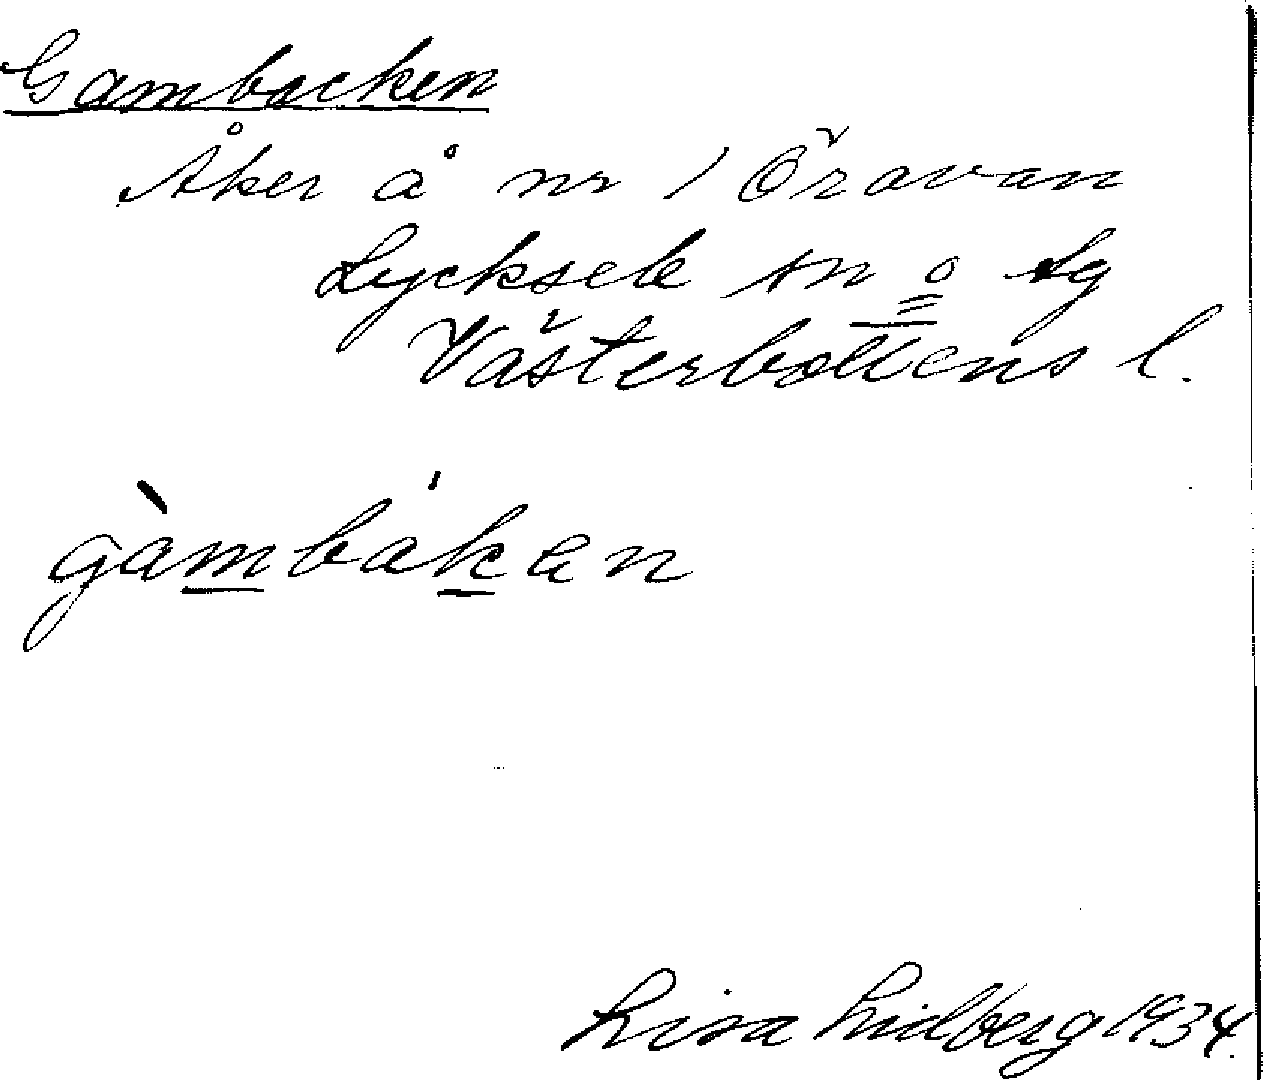 Gambacken
Åker å nr 1 Öravan
Lycksele sn o tg
Västerbottens l.
gàmbákan
Lisa Lidberg 1934.